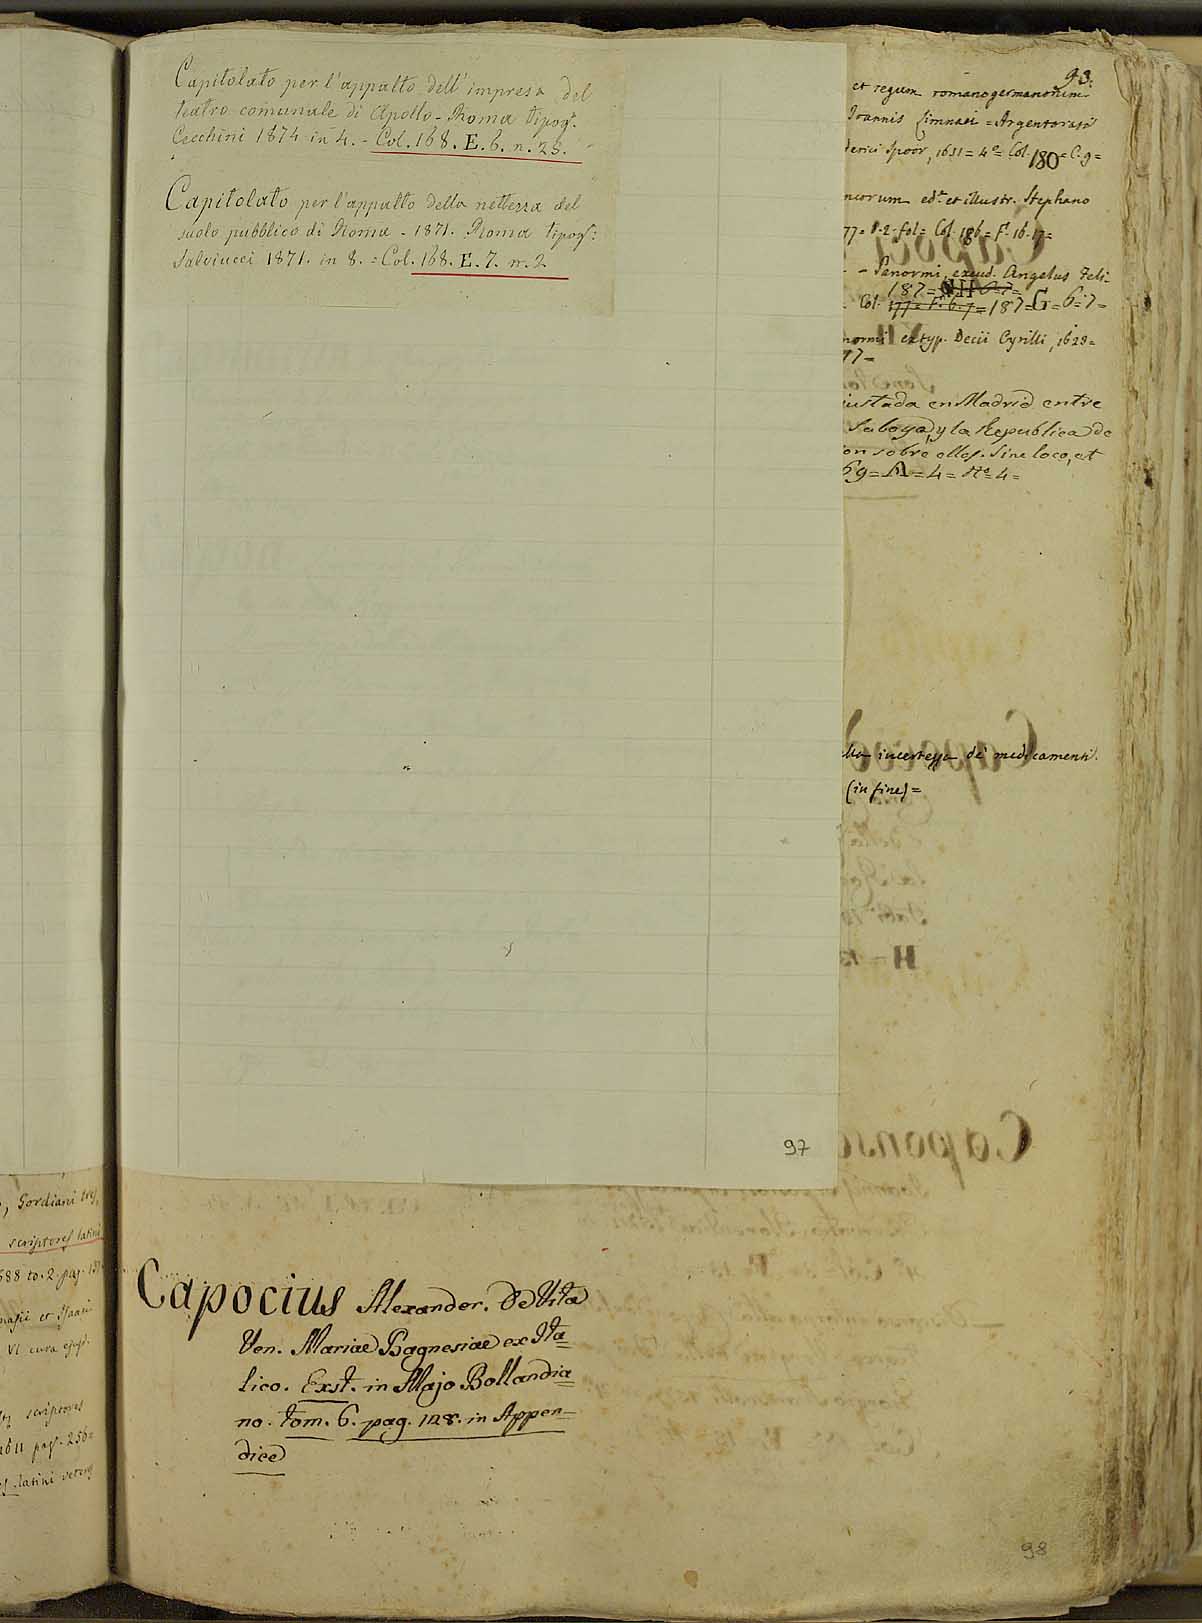 Capitolato per l'appalto dell'impresa del
teatro comunale di Apollo - Roma tipogr.
Cecchini 1874 in 4. - Col. 168. E. 6. n. 25.
Capitolato per l'appalto della nettezza del
suolo pubblico di Roma - 1871. Roma tipogr:
Salviucci 1871. in 8. = Col. 168. E. 7. n. 2
97
93.
et regum romanogermanorum
Joannis Limnaei = Argentorati
derici Spoor, 1651 = 4° = Col. 180 = C. 9 =
ed. et illustr. Stephano
77 = P. 2. fol = Col. 186 = F. 16. 17 =
- - Panormi, excud. Angelus Feli-
187 =
Col. 177 = F. 6. 7 = 187 = G = 6 = 7 =
normi ex typ. Decii Cyrilli, 1628 =
77 =
justada en Madrid entre
Saboya, y la Republica de
on sobre ellos. Sine loco, et
69 = A = 4 = N° 4 =
incertezza de' medicamenti.
(in fine) =
, Gordiani tres,
scriptores latini
688 to. 2. pag.
et Isaaci
VI cura
scriptores
pag. 256 =
latini veteres
Capocius Alexander. De Vita
Ven. Mariae Bagnesiae ex Ita
lico. Exst. in Majo Bollandia
no. tom. 6. pag. 128. in Appen
dice
98